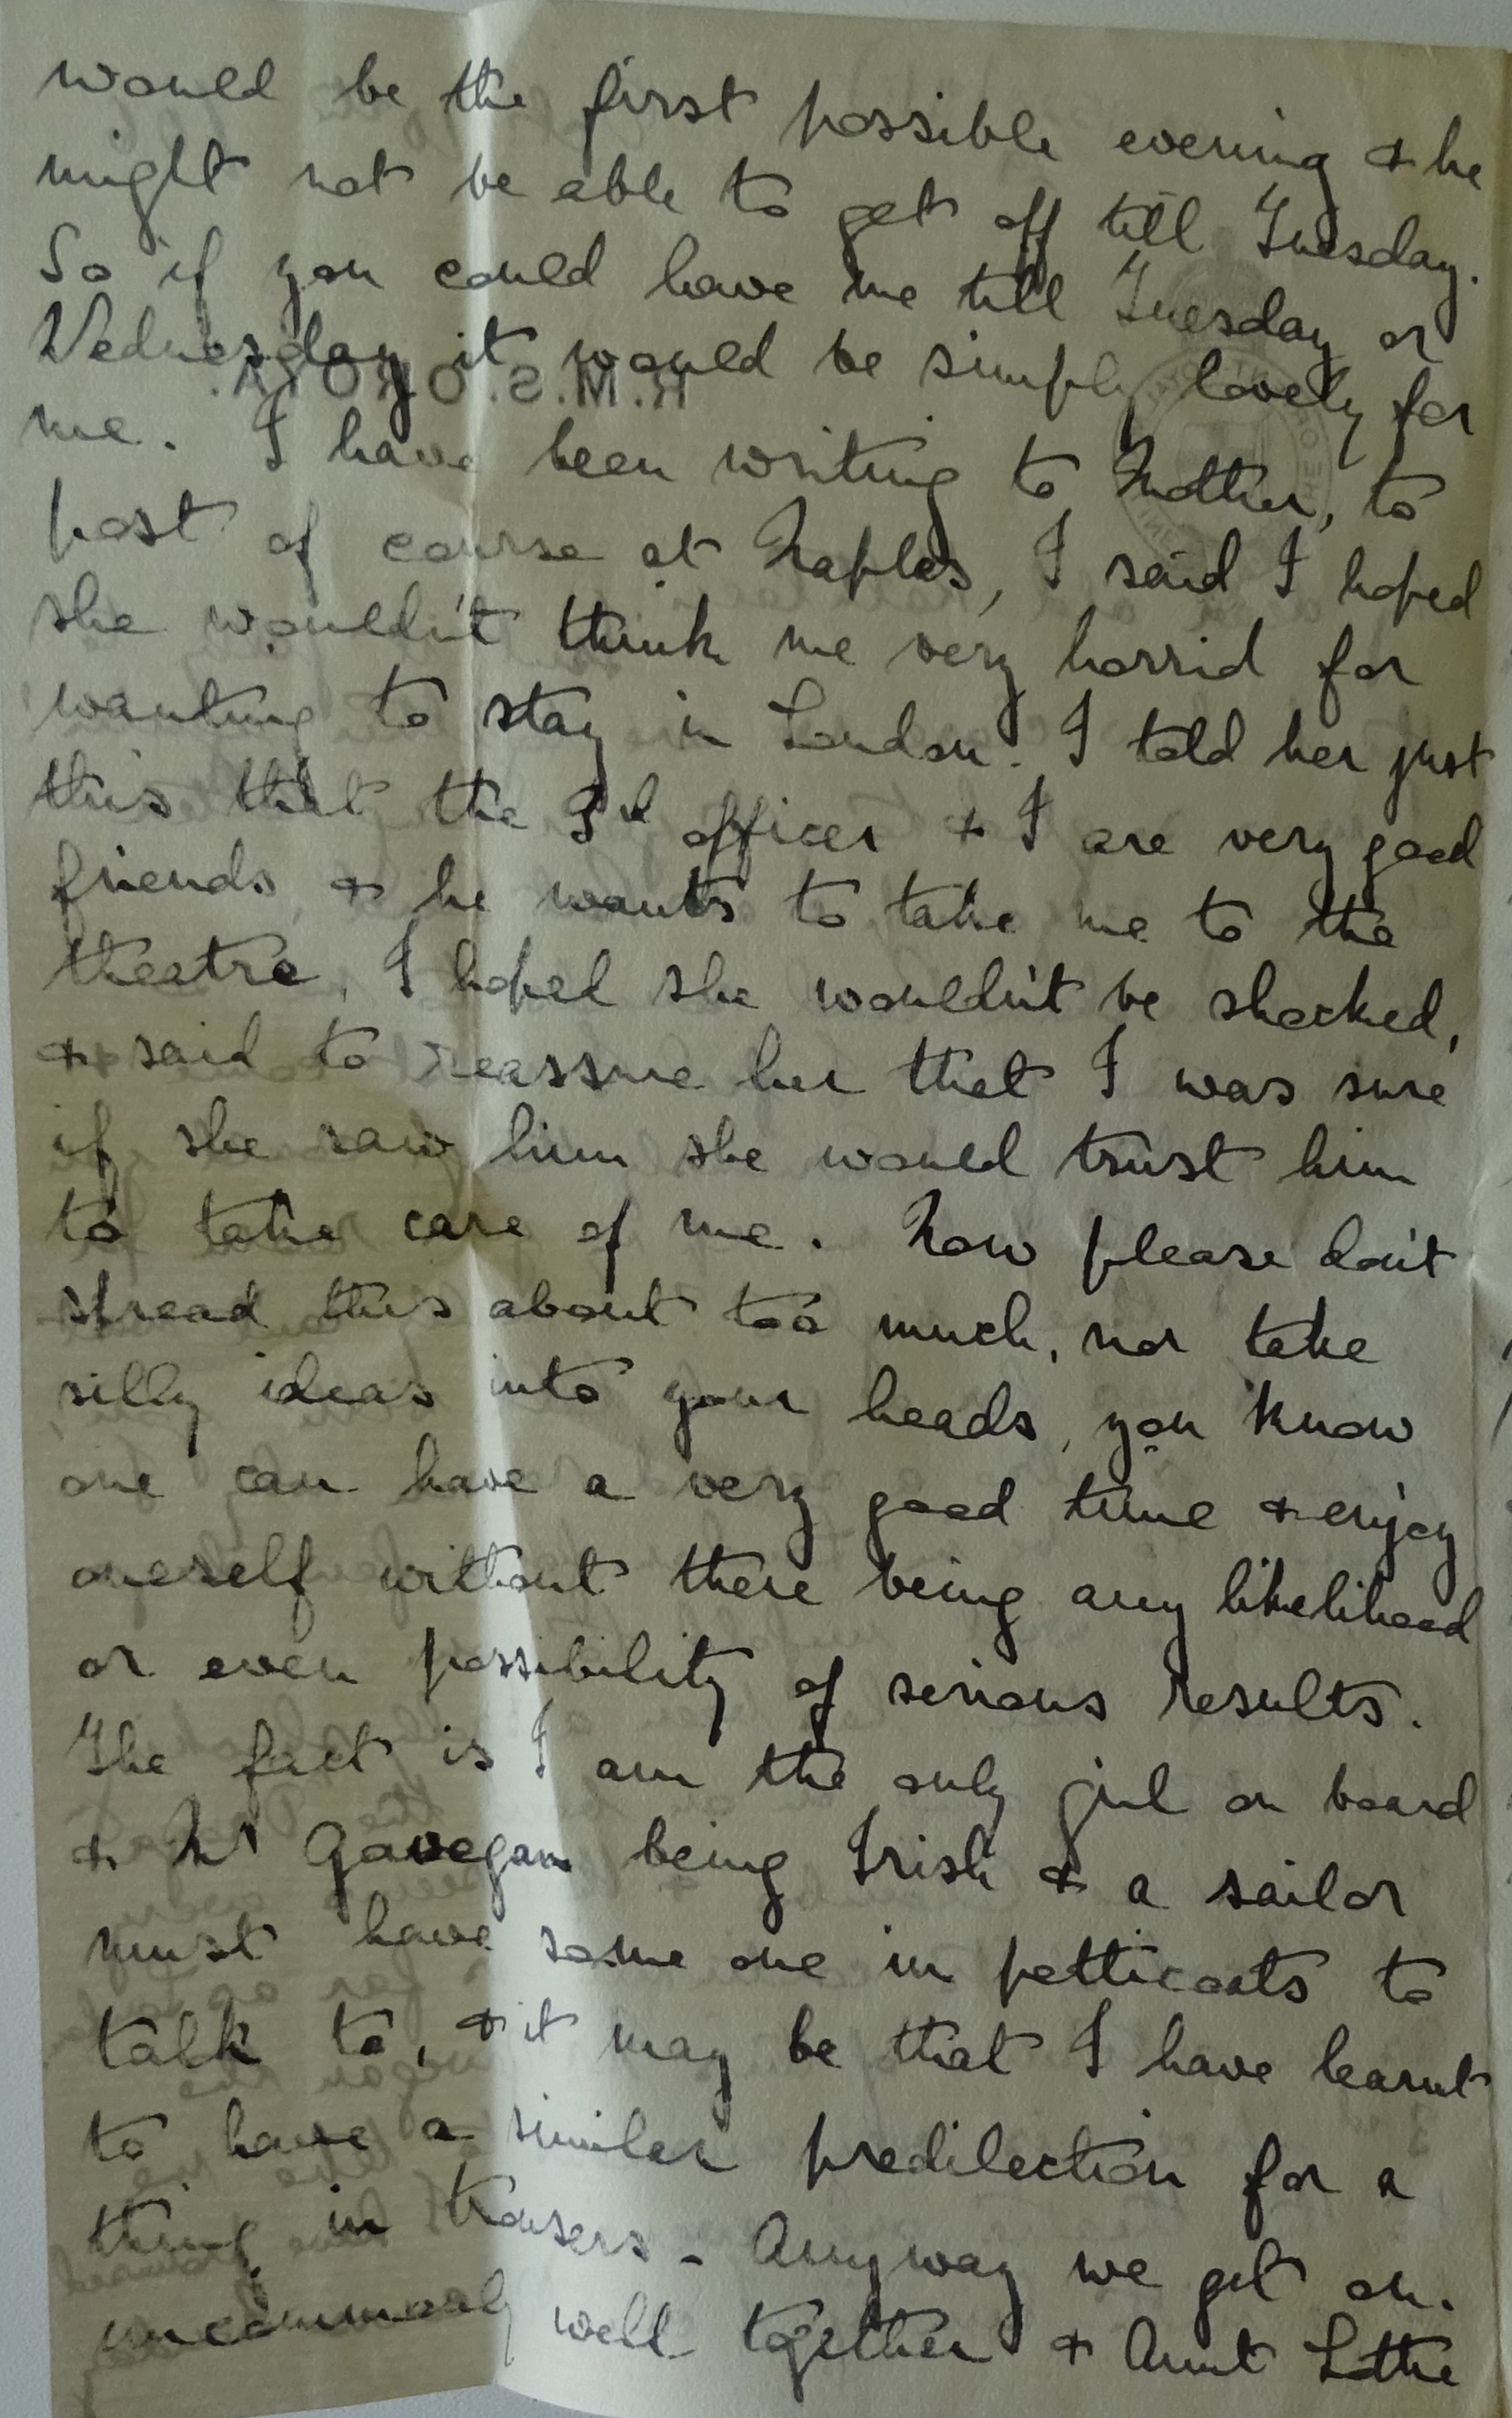 would be the first possible evening & he
might not be able to get off till Tuesday.
So if you could have me till Tuesday or
Wednesday it would be simply lovely for
R.M.S. OROTAVA.
me. I have been writing to Mother, to
post of course at Naples, I said I hoped
she wouldn't think me very horrid for
wanting to stay in London. I told her just
this that the 3rd officer & I are very good
friends & he wants to take me to the
theatre, I hoped she wouldn't be shocked,
& said to reassure her that I was sure
if she saw him she would trust him
to take care of me. Now please don't
spread this about too much, nor take
silly ideas into your heads, you know
one can have a very good time & enjoy
oneself without there being any likelihood
or even possibility of serious results.
The fact is I am the only girl on board
& Mr Gavegan being Irish & a sailor
must have some one in petticoats to
talk to, & it may be that I have learnt
to have a similar predilection for a
thing in trousers - Anyway we get on
uncommonly well together & Aunt Lottie